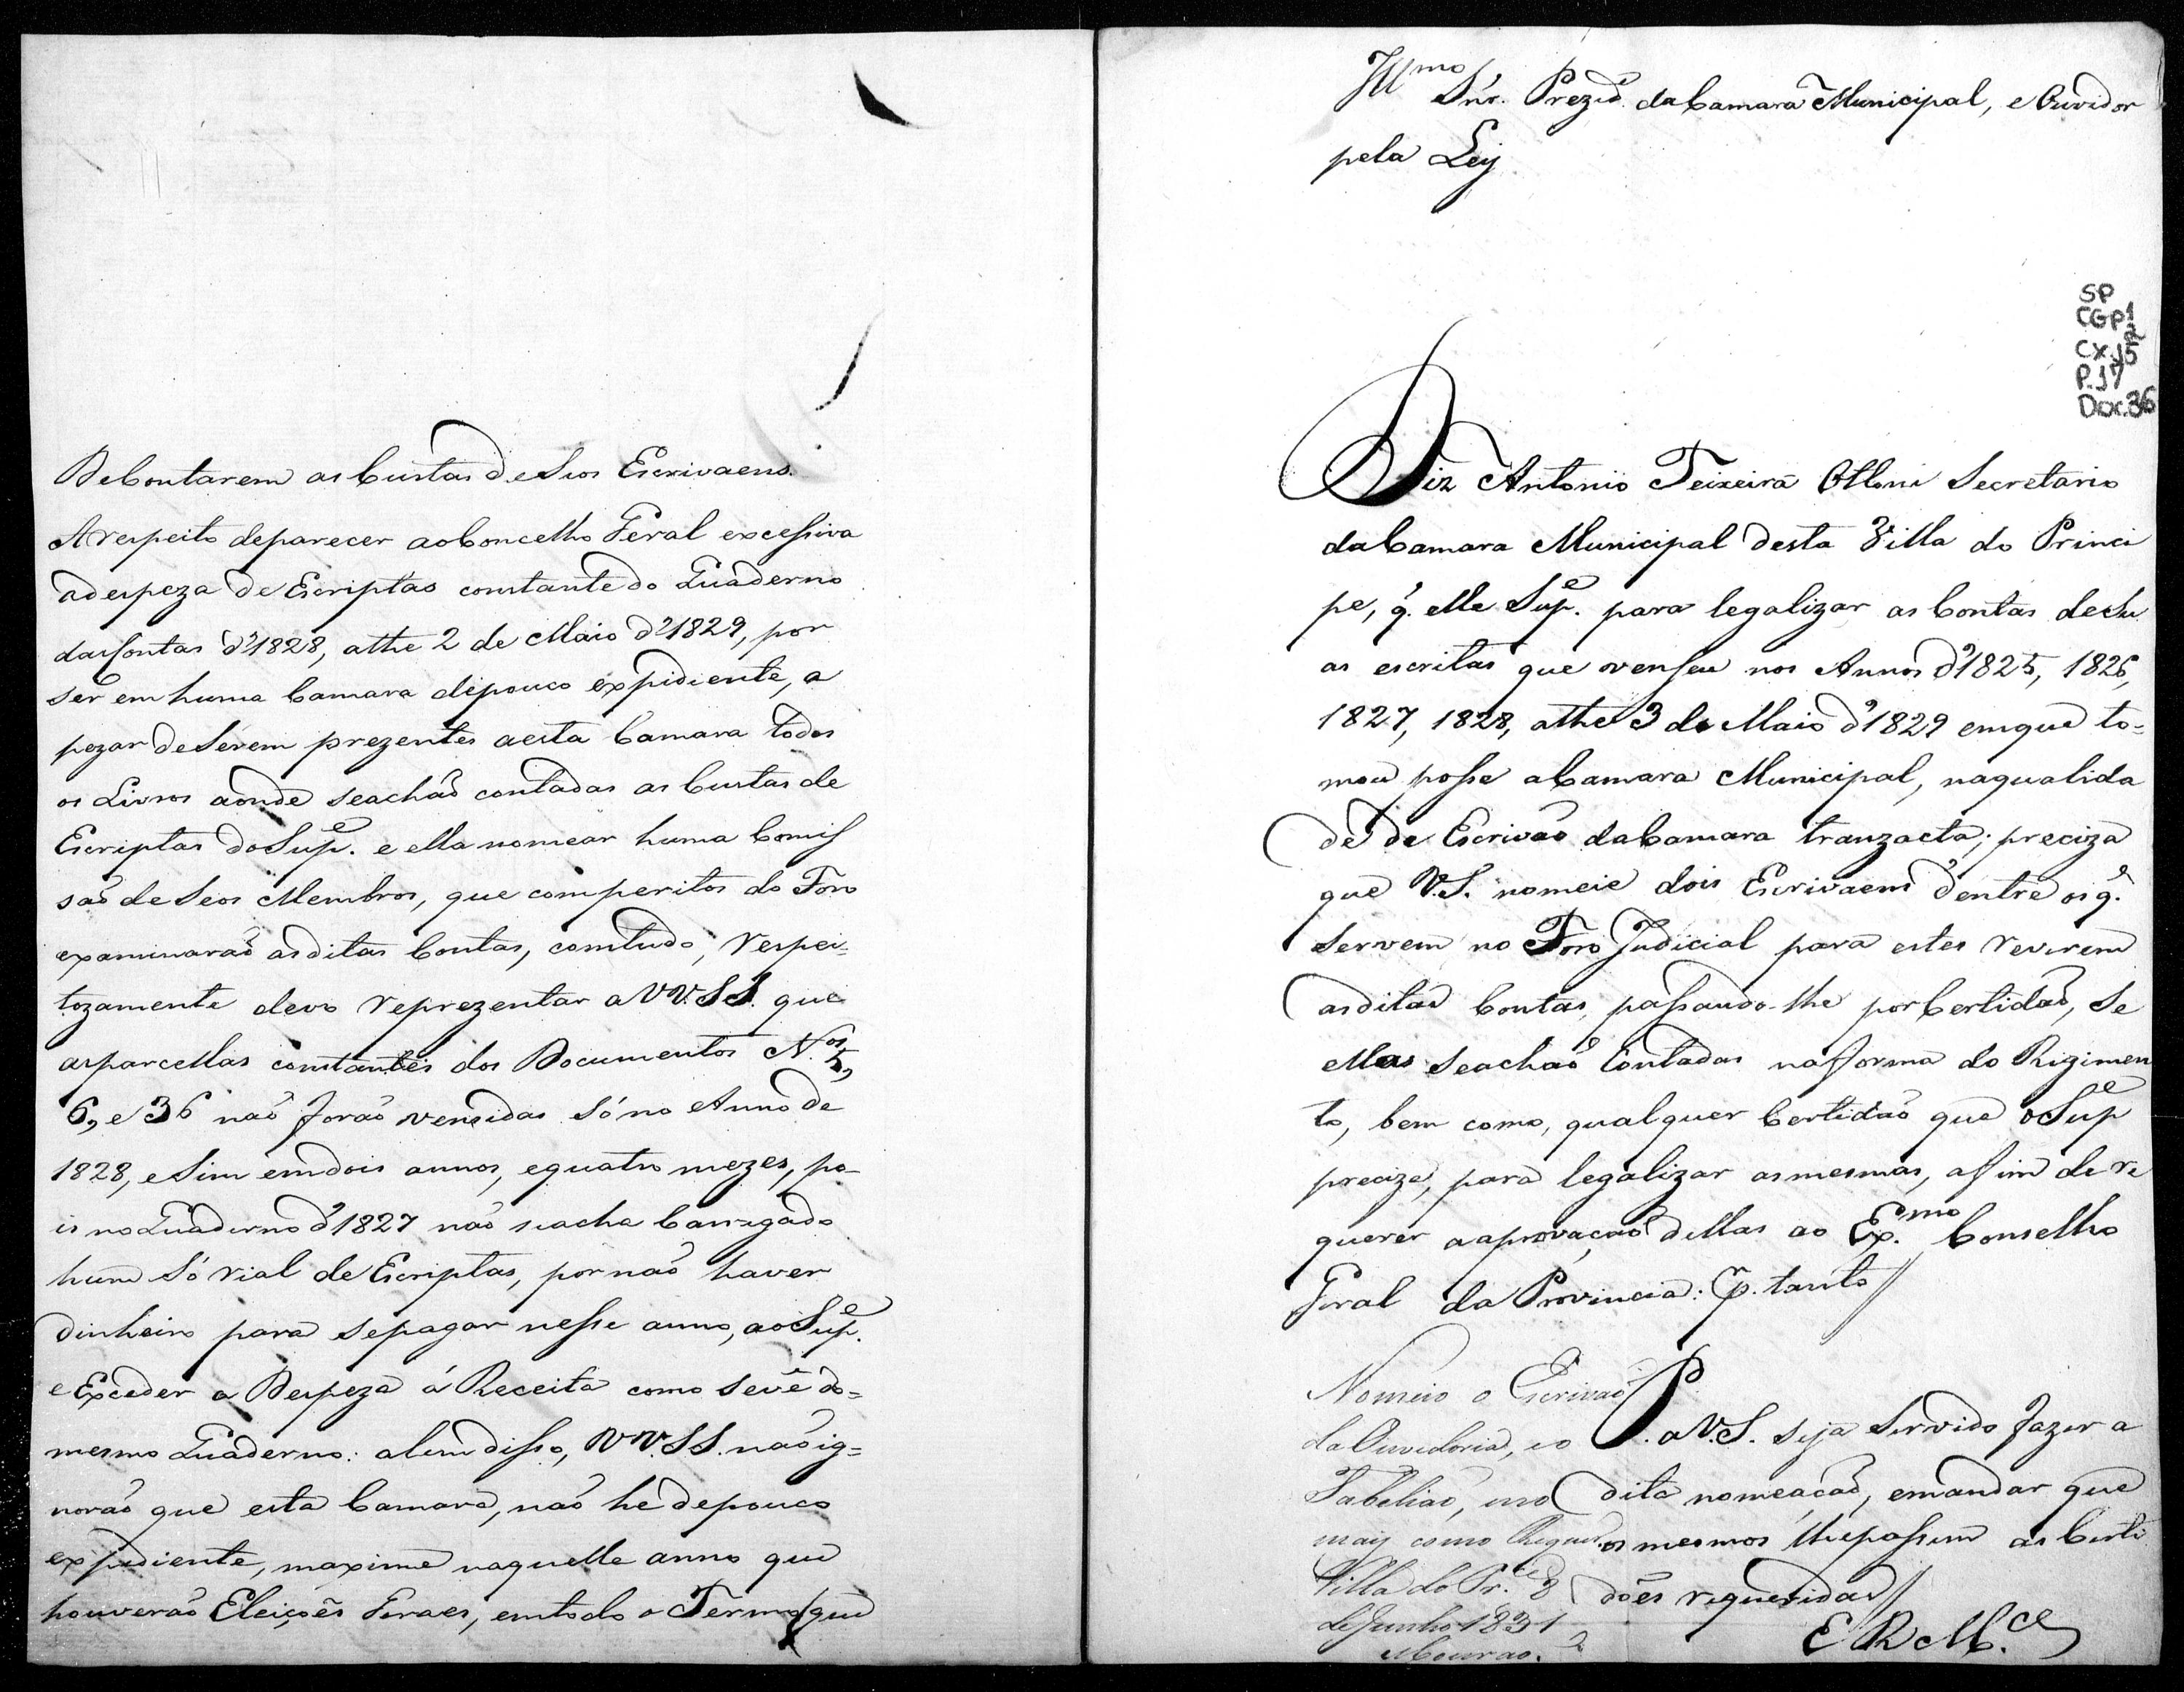 De Contarem as Custas de Seos Escrivaens.
A respeito de parecer ao Concelho Geral excessiva
a despeza de Escriptas constante do Quaderno
das Contas d'1828, athe 2 de Maio d'1829, por
ser em huma Camara de pouco expidiente, a
pezar de Serem prezentes a esta Camara todos
os Livros aonde se achaõ contadas as Custas de
Escriptas do Sup.e e ella nomear huma Comis
saõ de Seos Membros, que com peritos do Foro
examinaraõ as ditas Contas, comtudo, respei=
tozamente devo reprezentar a VV.SS. que
as parcellas constantes dos Documentos N.os 5,
6, e 36 naõ foraõ vencidas só no Anno de
1828, e Sim em dois annos, e quatro mezes, po-
is no Quaderno d'1827 naõ se acha Carregado
hum Só rial de Escriptas, por naõ haver
dinheiro para se pagar nesse anno, ao Sup.e
e Exceder a Despeza á Receita como se vê do=
mesmo Quaderno: alem disso, VV.SS. naõ ig=
noraõ que esta Camara, naõ he de pouco
expidiente, maxime naquelle anno que
houveraõ Eleiçoẽs Geraes, em todo o Termo (que
Ill.mo Snr. Prezid.e da Camara Municipal, e Ouvidor
pela Ley
SP
CGP1
2
Cx.15
P.17
Doc.36
Diz Antonio Teixeira Ottoni Secretario
da Camara Municipal desta Villa do Princi
pe, q. elle Sup.e para legalizar as Contas de Su
as escritas que venseu nos Annos d'1825, 1826,
1827, 1828, athe 3 de Maio d'1829 em que to=
mou posse a Camara Municipal, na qualida
de de Escrivaõ da Camara tranzacta; preciza
que V.S. nomeie dois Escrivaens d'entre os q.
Servem no Foro Judicial para estes reverem
as ditas Contas, passando-lhe por Certidaõ, Se
ellas Se achaõ Contadas na forma do Rigimen
to, bem como, qualquer Certidaõ que o Sup.e
precize, para legalizar as mesmas, afim de re
querer a aprovaçaõ dellas ao Ex.mo Conselho
Geral da Provincia: P.r tanto //
P. a V.S. seja Servido fazer a
dita nomeaçaõ, e mandar que
os mesmos lhe passem as Certi
does requeridas //
E R M.ce
Nomeio o Escrivaõ
da Ouvidoria, e o
Tabeliaõ, e no
mais como Requer.
Villa do Pr.e 8
de Junho 1831
Mouraõ.